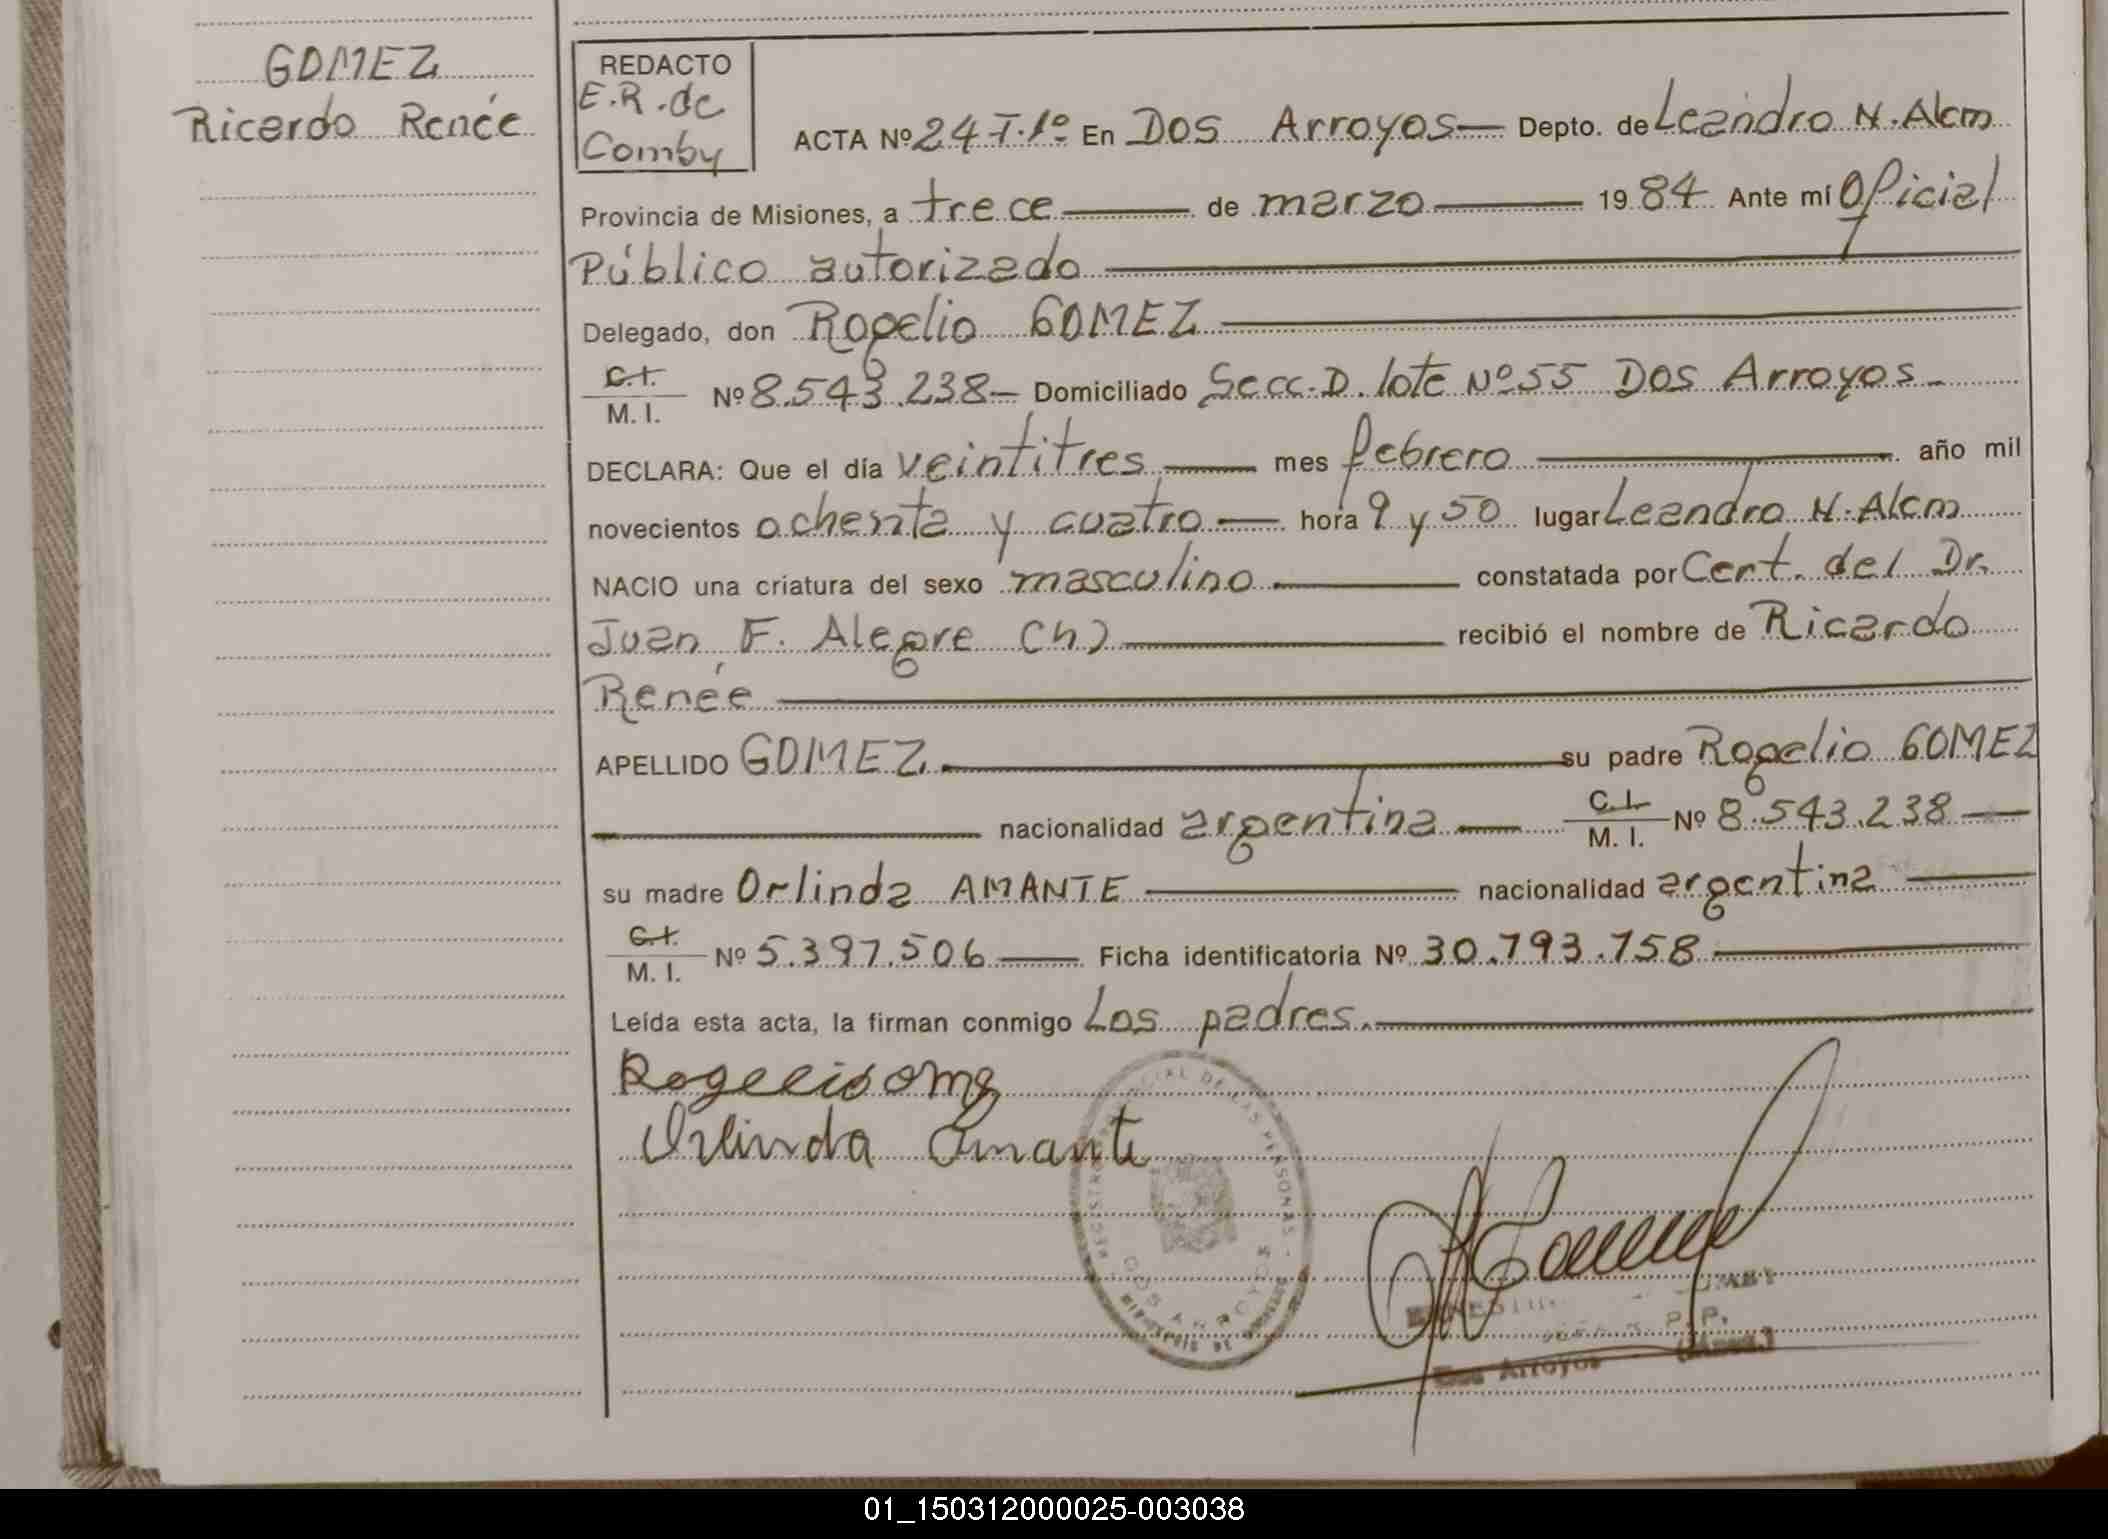 GOMEZ
Ricardo Renée
REDACTO
E.R. de
Comby
ACTA Nº 24 T.1º En Dos Arroyos — Depto. de Leandro N. Alem
Provincia de Misiones, a trece — de marzo — 1984 Ante mí Oficial
Público autorizado
Delegado, don Rogelio GOMEZ
C.I.
M. I. Nº 8.543.238 — Domiciliado Secc. D. lote Nº 55 Dos Arroyos.-
DECLARA: Que el día veintitres — mes febrero — año mil
novecientos ochenta y cuatro — hora 9 y 50 lugar Leandro N. Alem
NACIO una criatura del sexo masculino — constatada por Cert. del Dr.
Juan F. Alegre (h) — recibió el nombre de Ricardo
Renée
APELLIDO GOMEZ — su padre Rogelio GOMEZ
— nacionalidad argentina — C.I.
M. I. Nº 8.543.238 —
su madre Orlinda AMANTE — nacionalidad argentina —
C.I.
M. I. Nº 5.397.506 — Ficha identificatoria Nº 30.793.758 —
Leída esta acta, la firman conmigo Los padres.
Orlinda Amante
DE LAS PERSONAS
DOS ARROYOS
P. P.
Dos Arroyos
01_150312000025-003038